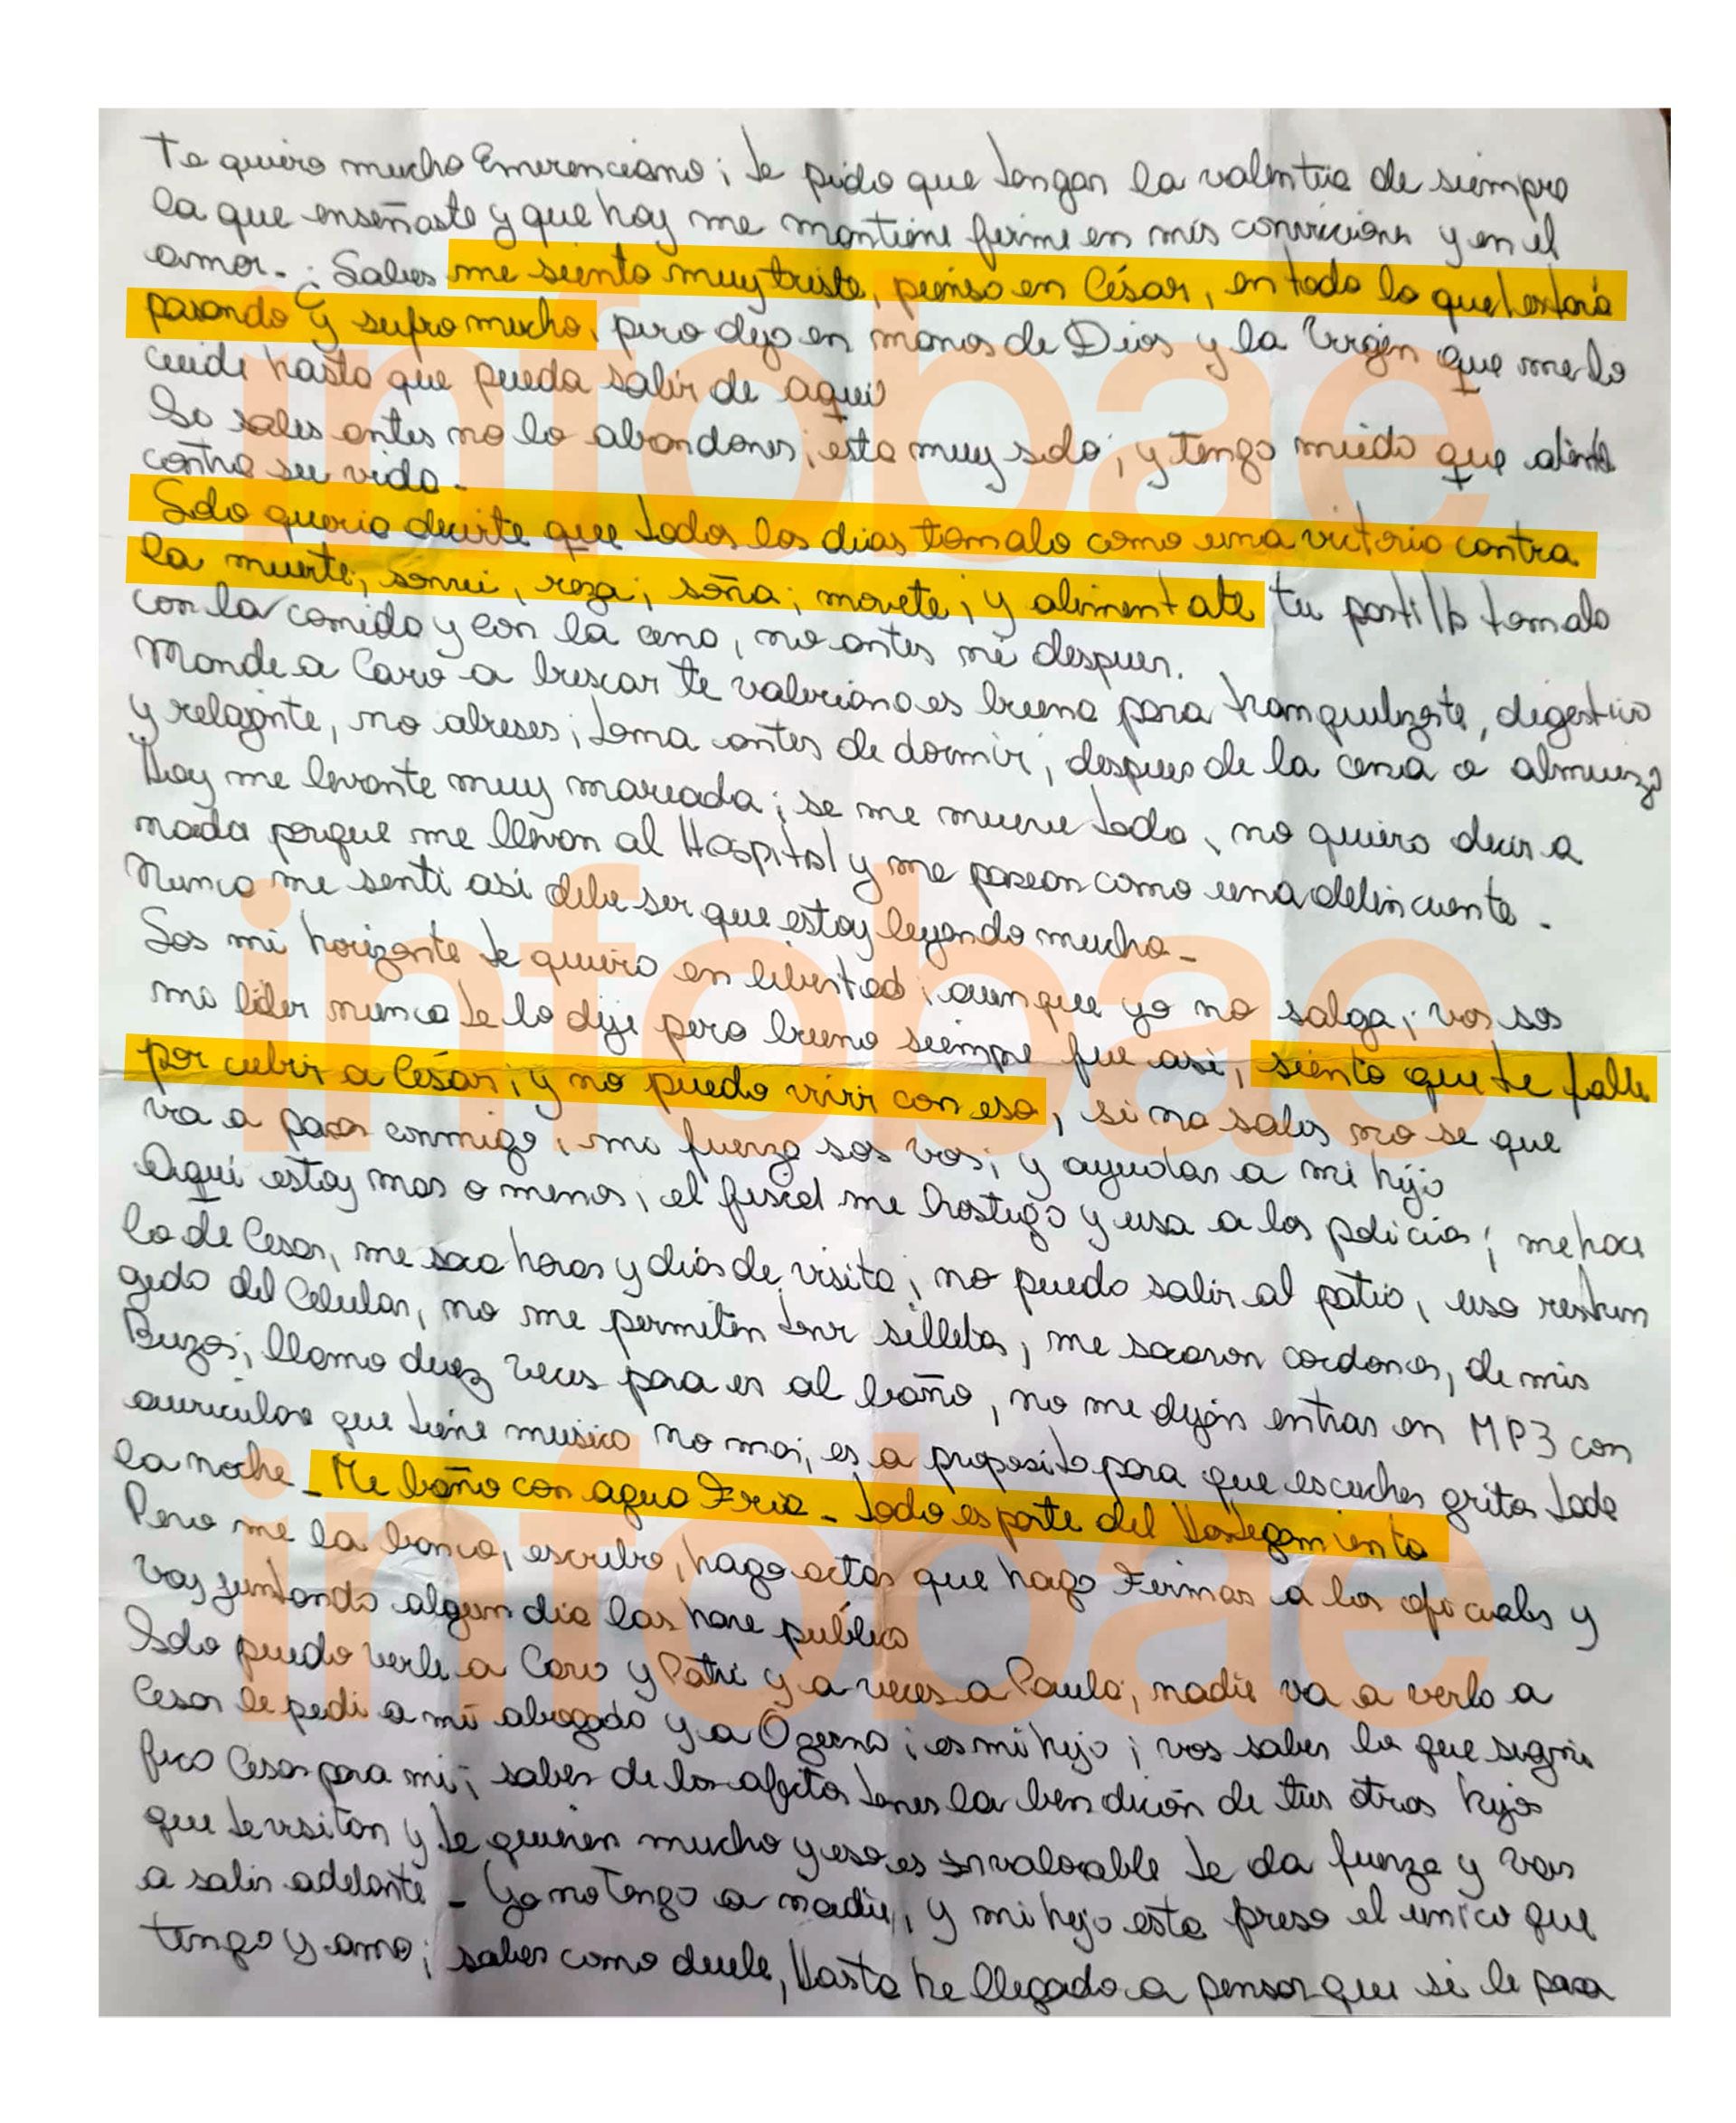 Te quiero mucho Emerenciano; te pido que tengas la valentia de siempre
la que enseñaste y que hoy me mantiene firme en mis convicciones y en el
amor.- ¿Sabes me siento muy triste, pienso en César, en todo lo que estará
pasando y sufro mucho, pero dejo en manos de Dios y la Virgen que me lo
cuide hasta que pueda salir de aquí
Si sales antes no lo abandones; esta muy solo; y tengo miedo que atente
contra su vida.-
Solo queria decirte que todos los dias tomalo como una victoria contra
la muerte; sonrei, reza; soña; movete; y alimentate tu pastilla tomala
con la comida y con la cena, no antes ni despues.
Mande a Caro a buscar te valeriana es buena para tranquilizarte, digestivo
y relajante, no abuses; toma antes de dormir; despues de la cena o almuerzo
Hoy me levante muy mareada; se me mueve todo, no quiero decir a
nada porque me llevan al Hospital y me pasean como una delincuente.-
Nunca me senti asi debe ser que estoy leyendo mucho-
Sos mi horizonte te quiero en libertad; aunque yo no salga; vos sos
mi lider nunca te lo dije pero bueno siempre fue asi, siento que te falle
por cubrir a César; y no puedo vivir con eso, si no sales no se que
va a pasar conmigo, mi fuerza sos vos; y ayudas a mi hijo
Aquí estoy mas o menos; el fiscal me hostiga y usa a los policias; me hace
lo de Cesar, me saca horas y dias de visita; no puedo salir al patio, uso restrin
gido del Celular, no me permiten tener silleta, me sacaron cordones, de mis
Buzos; llamo diez veces para ir al baño, no me dejan entrar en MP3 con
auriculares que tiene musica no mas, es a proposito para que escuches gritos toda
la noche - Me baño con agua Fria - todo es parte del Hostigamiento
Pero me la banco, escribo, hago actas que hago Firmar a los oficiales y
voy juntando algun dia las hare públicas
Solo puedo verle a Caro y Patri y a veces a Paula, nadie va a verlo a
Cesar le pedi a mi abogado y a Ogerno; es mi hijo; vos sabes lo que signi
fica Cesar para mi; sabes de los afectos tenes la bendición de tus otros hijos
que te visitan y te quieren mucho y eso es invalorable te da fuerza y vas
a salir adelante - Yo no tengo a nadie, y mi hijo esta preso el unico que
tengo y amo; sabes como duele, Hasta he llegado a pensar que si le pasa
infobae
infobae
infobae